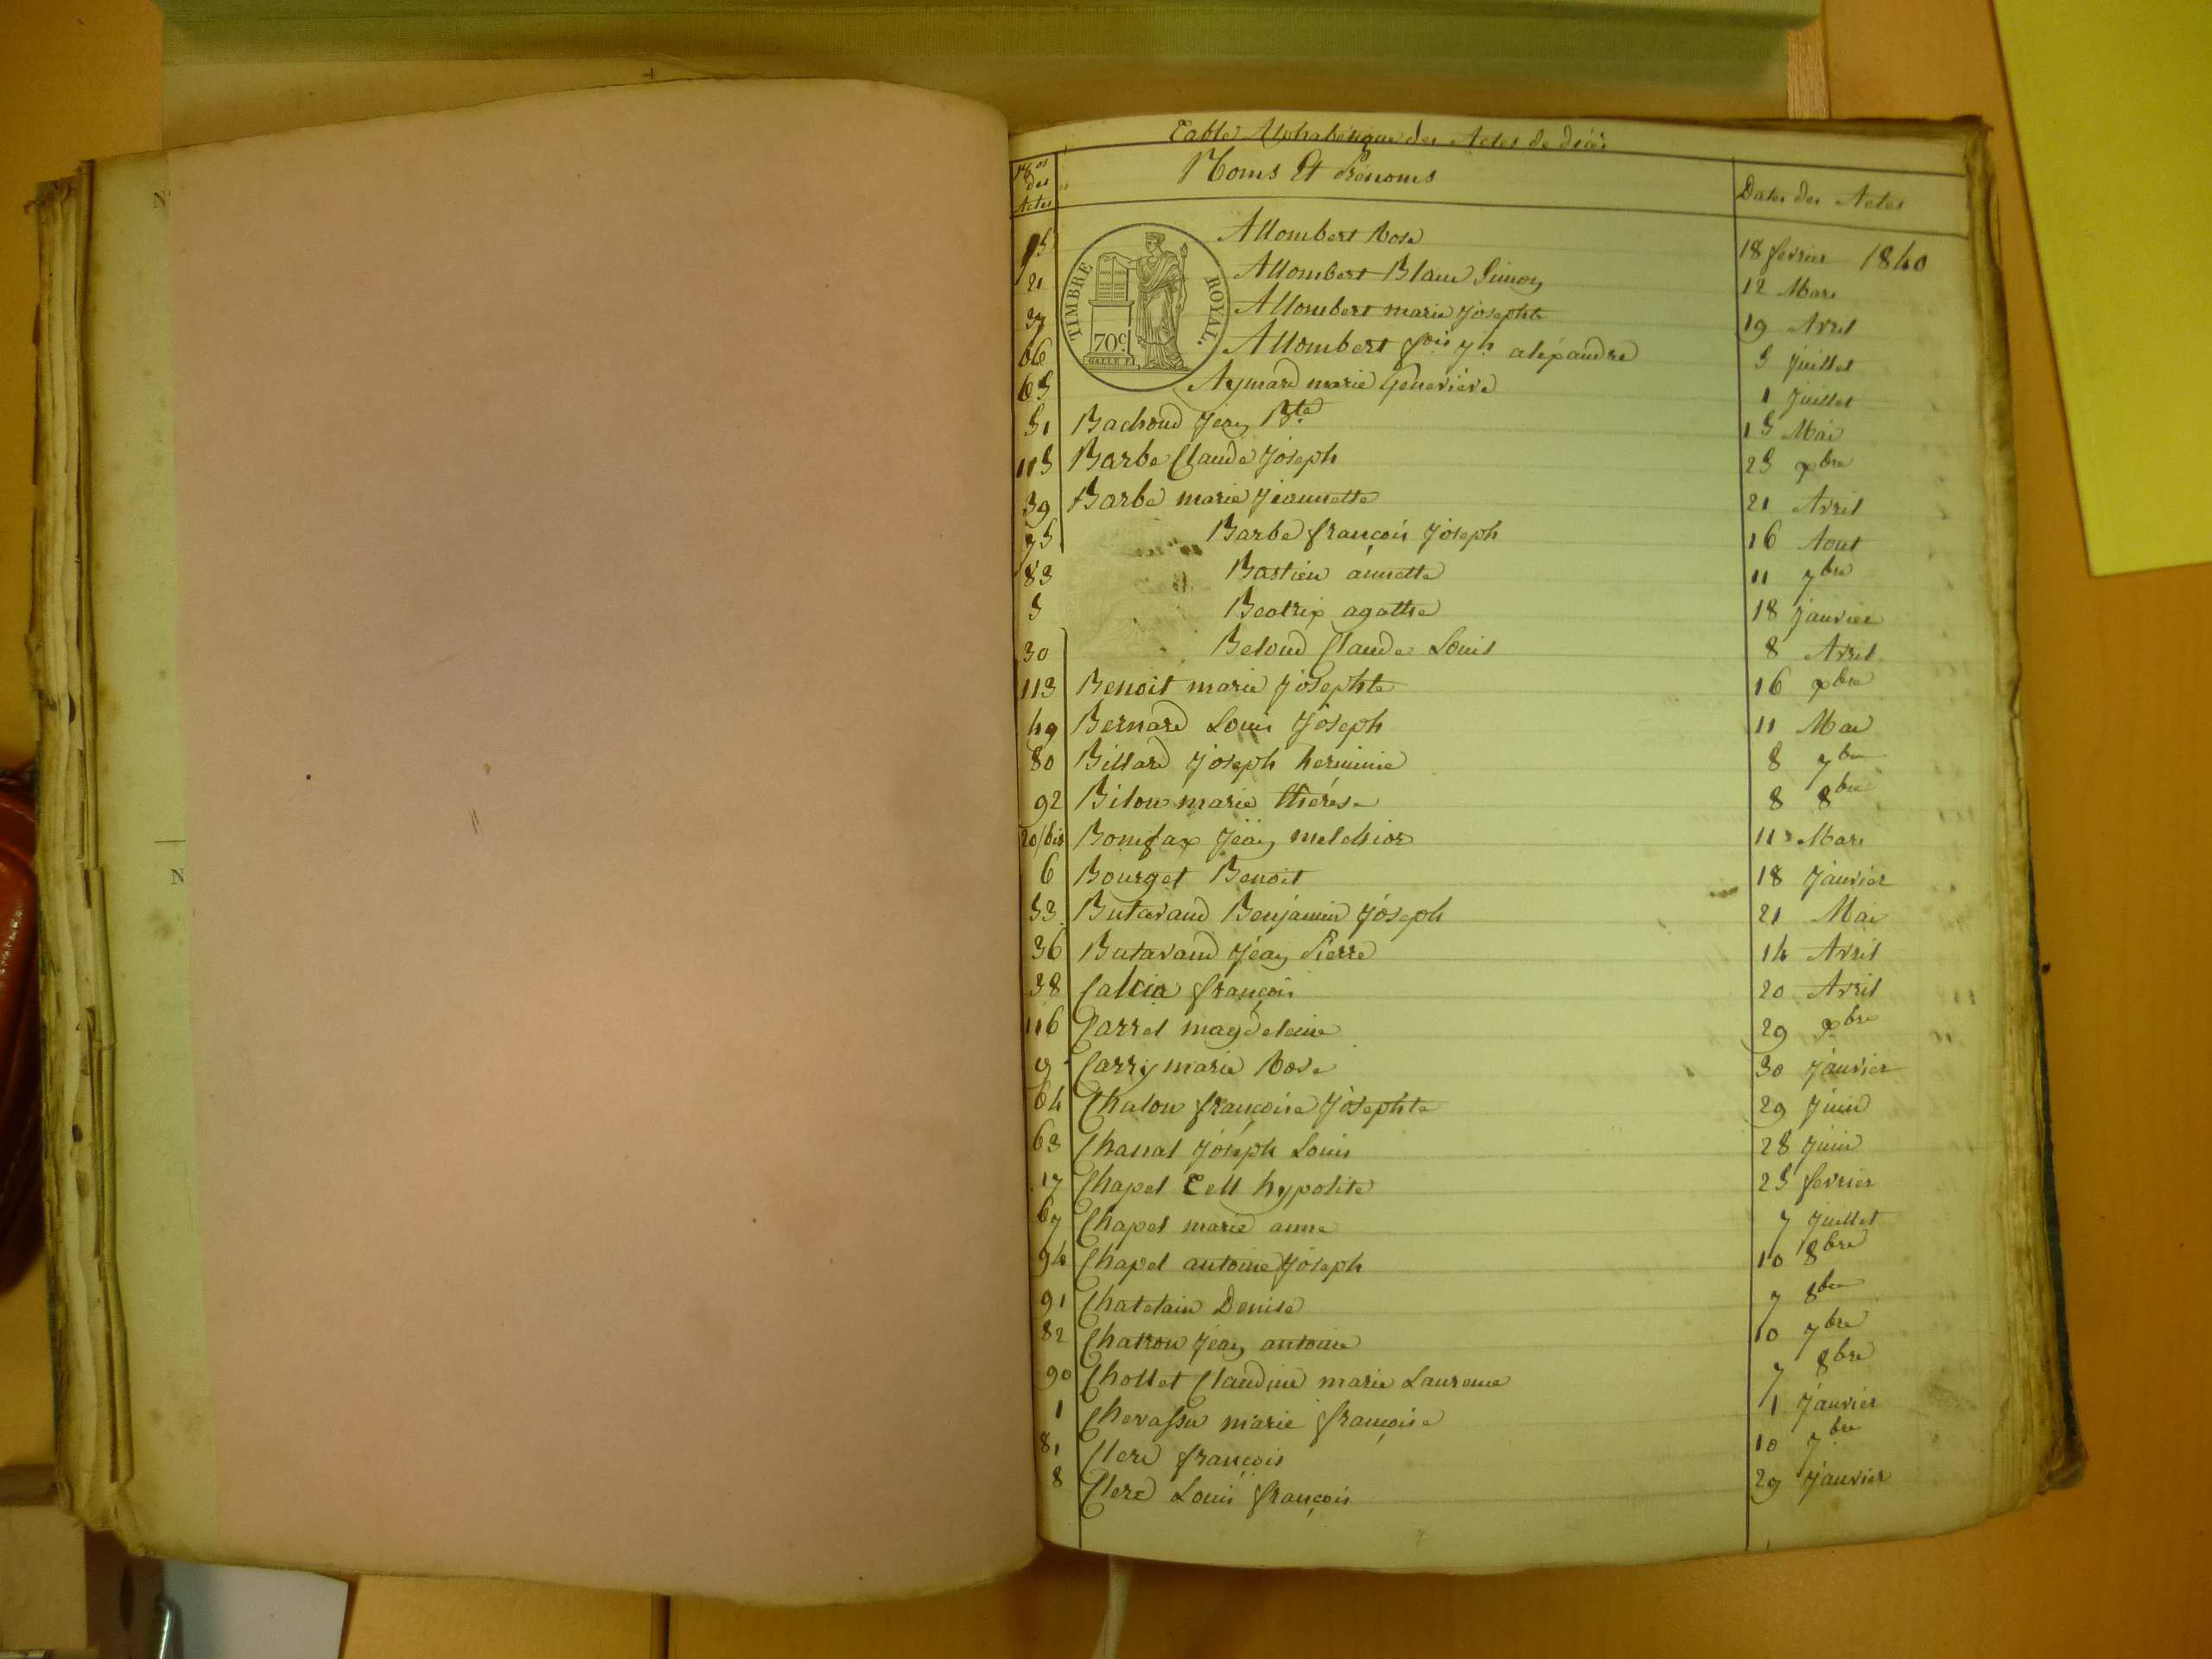 Table Alphabétique des Actes de décès
Nos des Actes
Noms Et Prénoms
Dates des Actes
TIMBRE ROYAL.
70c
GALLE F.
15 Allombert Rose 18 fevrier 1840
21 Allombert Blanc Simon 12 Mars
37 Allombert marie Josephte 19 Avril
66 Allombert fois jh alexandre 5 Juillet
65 Aymard marie Geneviève 1 Juillet
51 Bachoud Jean Bte 15 Mai
115 Barbe Claude Joseph 25 xbre
39 Barbe marie Jeannette 21 Avril
75 Barbe françois Joseph 16 Aout
83 Bastien annette 11 7bre
5 Beatrix agathe 18 Janvier
30 Beloud Claude Louis 8 Avril
113 Benoit marie Josephte 16 xbre
49 Bernard Louis Joseph 11 Mai
80 Billard Joseph herminie 8 7bre
92 Bilon marie thérese 8 8bre
20/bis Bonifax Jean melchior 11 Mars
6 Bourget Benoit 18 Janvier
53 Butavand Benjamin Joseph 21 Mai
36 Butavand Jean Pierre 14 Avril
38 Calcia françois 20 Avril
116 Carrel magdeleine 29 xbre
9 Carry marie Rose 30 Janvier
64 Chalon françoise Josephte 29 Juin
63 Chanal Joseph Louis 28 Juin
17 Chapel Tell hypolite 25 fevrier
67 Chapel marie anne 7 Juillet
94 Chapel antoine Joseph 10 8bre
91 Chatelain Denise 7 8bre
82 Chatron Jean antoine 10 7bre
90 Chollet Claudine marie Laurence 7 8bre
1 Chevassu marie françoise 1 Janvier
81 Clerc françois 10 7bre
8 Clerc Louis françois 29 Janvier